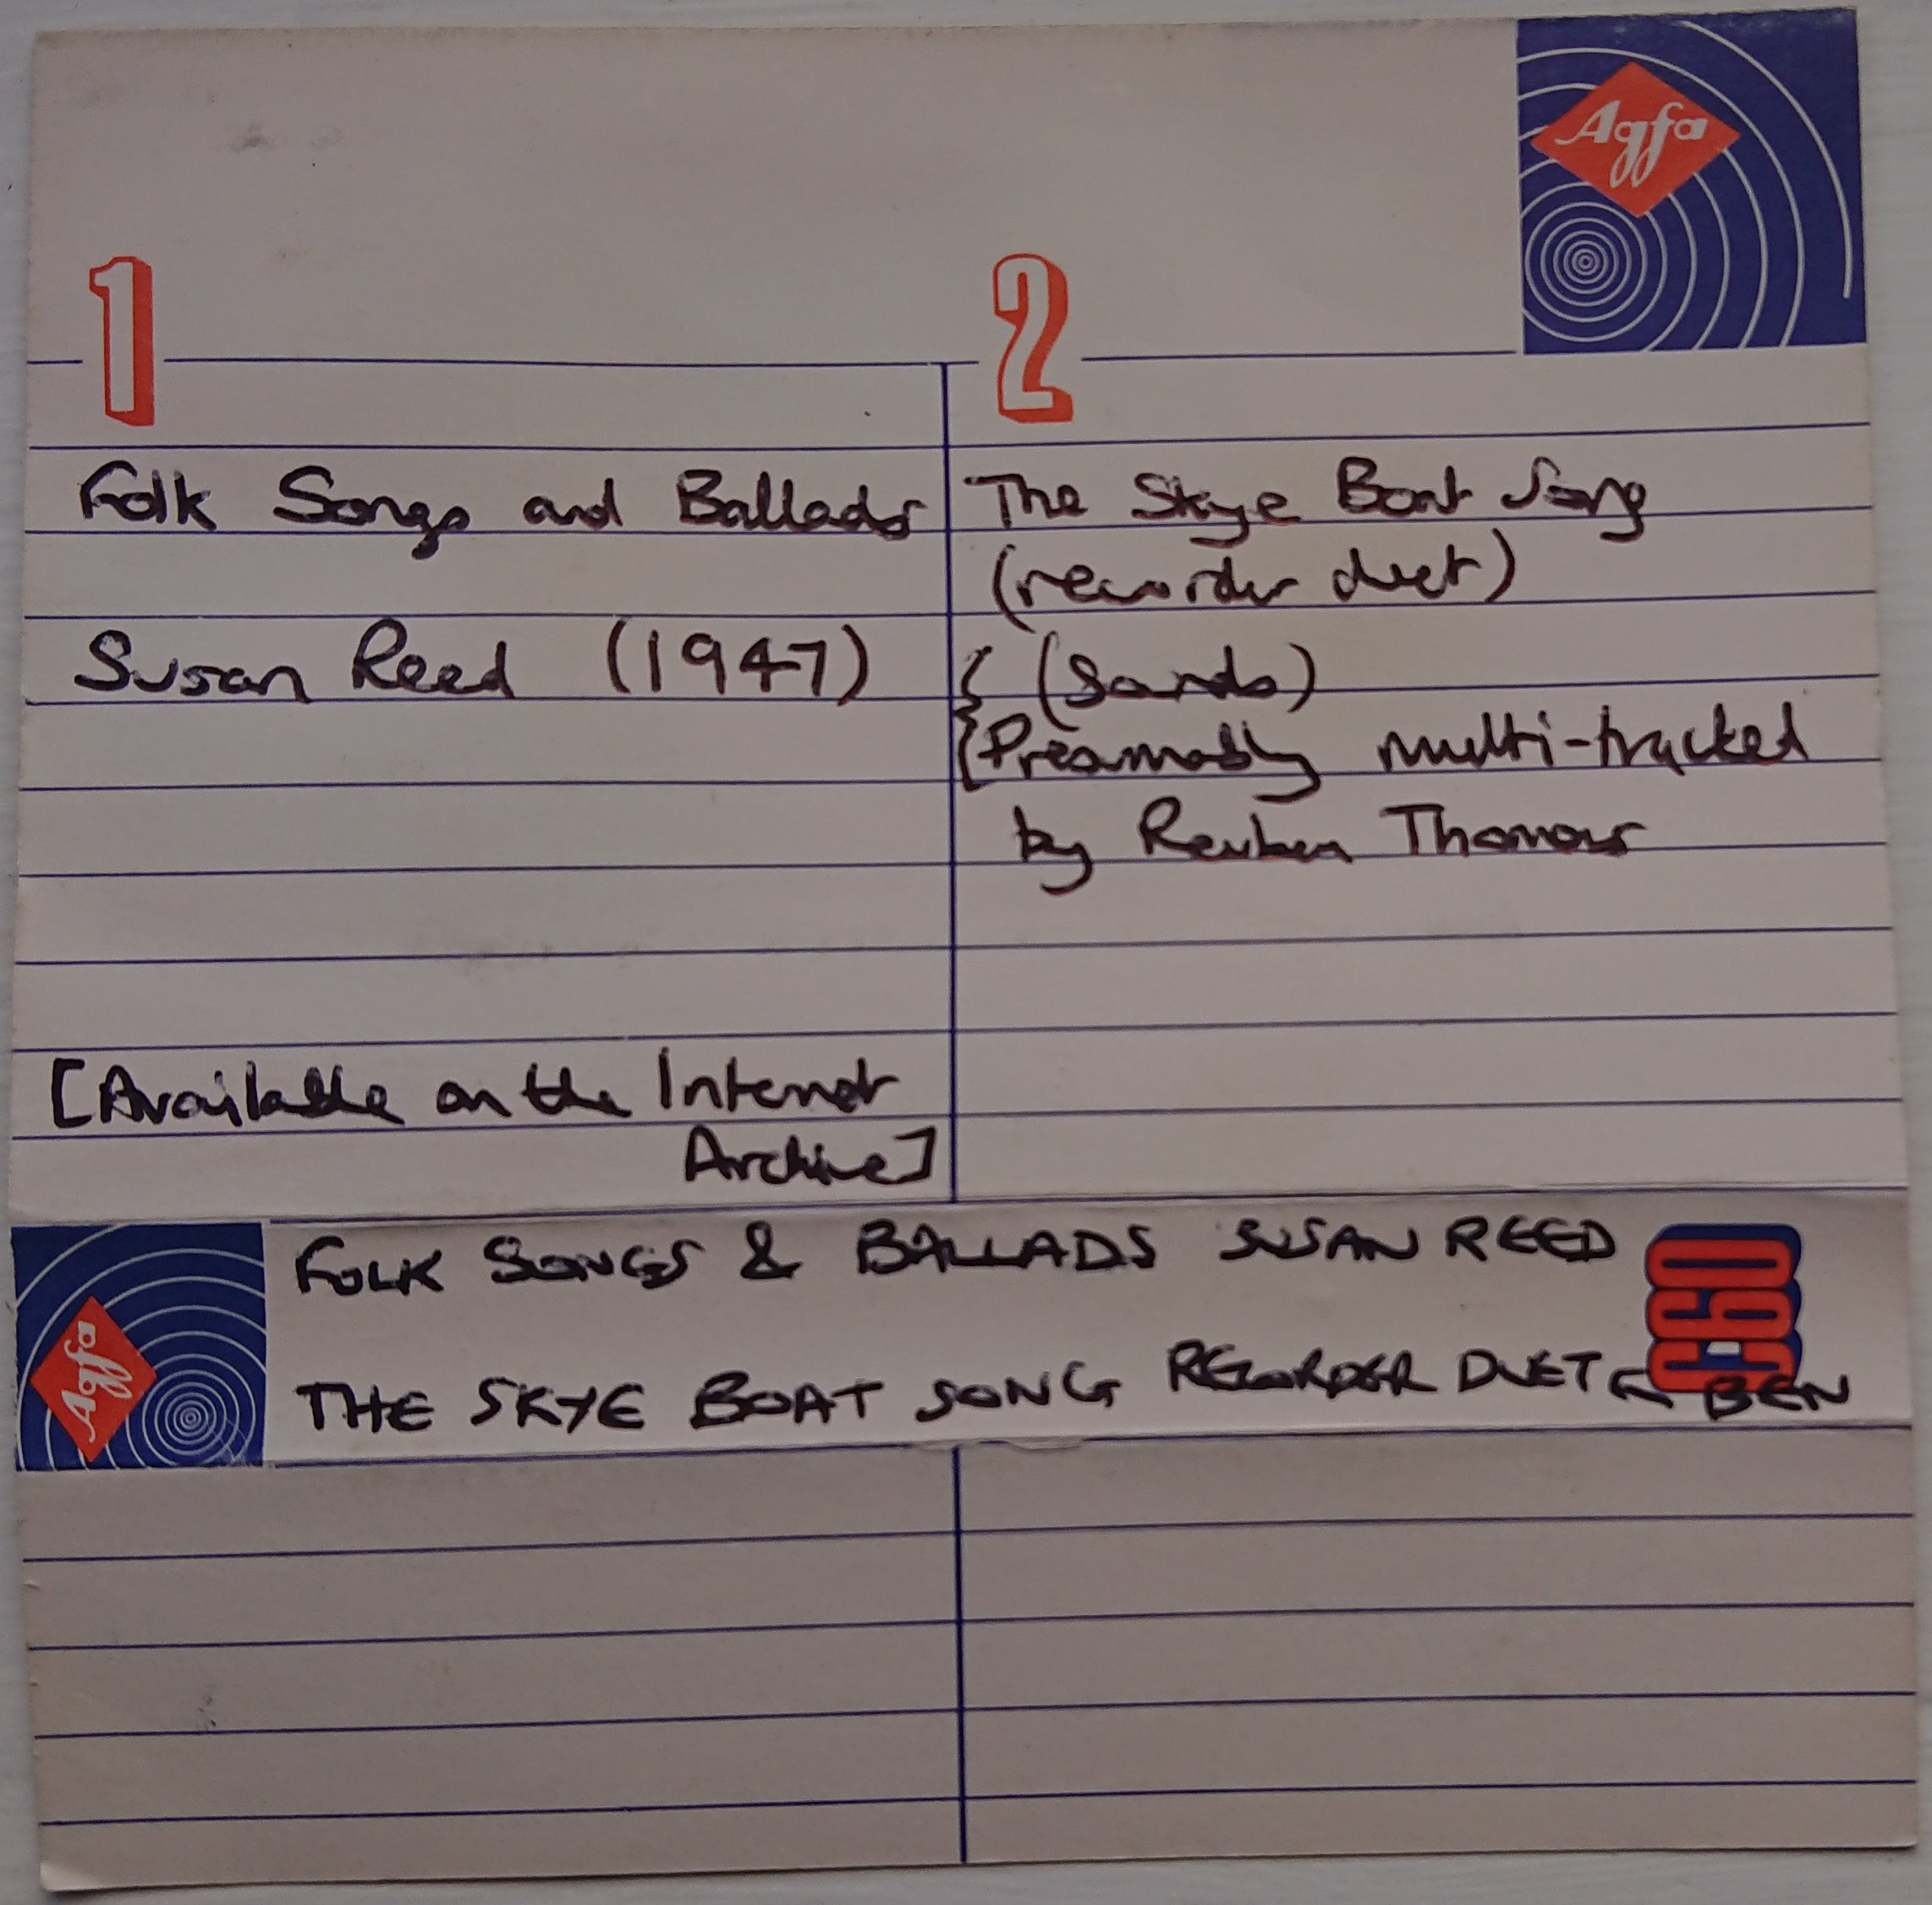 Agfa
1
Folk Songs and Ballads
Susan Reed (1947)
[Available on the Internet
Archive]
2
The Skye Boat Song
(recorder duet)
{ (Sands)
{ Presumably multi-tracked
by Reuben Thomas
Agfa
FOLK SONGS & BALLADS SUSAN REED
THE SKYE BOAT SONG RECORDER DUET BEN
C60